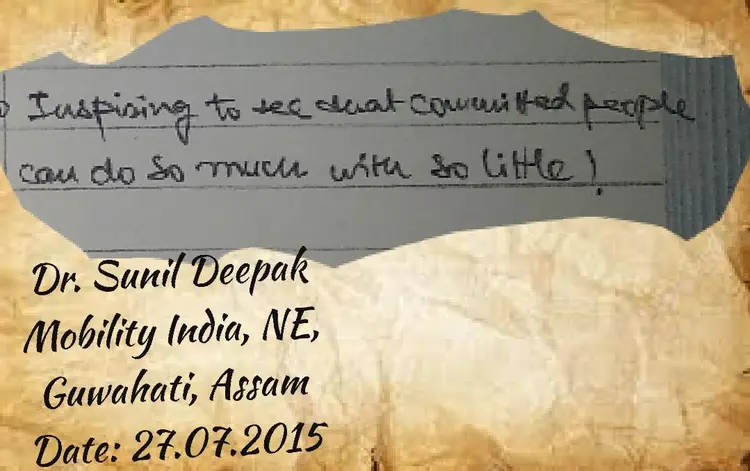 Inspiring to see that committed people
can do so much with so little!
Dr. Sunil Deepak
Mobility India, NE,
Guwahati, Assam
Date: 27.07.2015